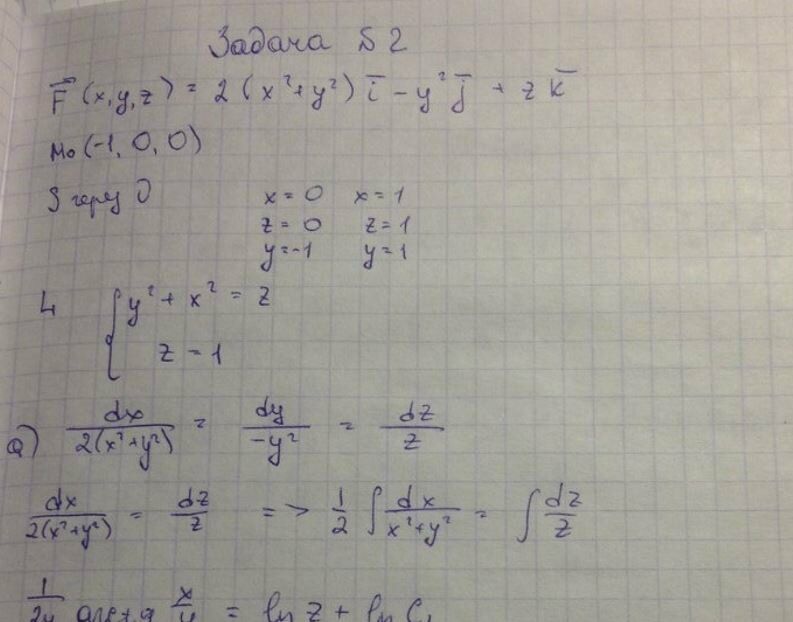 Задача №2
F̄(x,y,z) = 2(x²+y²) ī - y² j̄ + z k̄
M₀(-1, 0, 0)
S через x = 0 x = 1
z = 0 z = 1
y = -1 y = 1
L { y² + x² = z
z = 1
a) dx/(2(x²+y²)) = dy/(-y²) = dz/z
dx/(2(x²+y²)) = dz/z => 1/2 ∫ dx/(x²+y²) = ∫ dz/z
1/(2y) arctg x/y = ln z + ln C₁